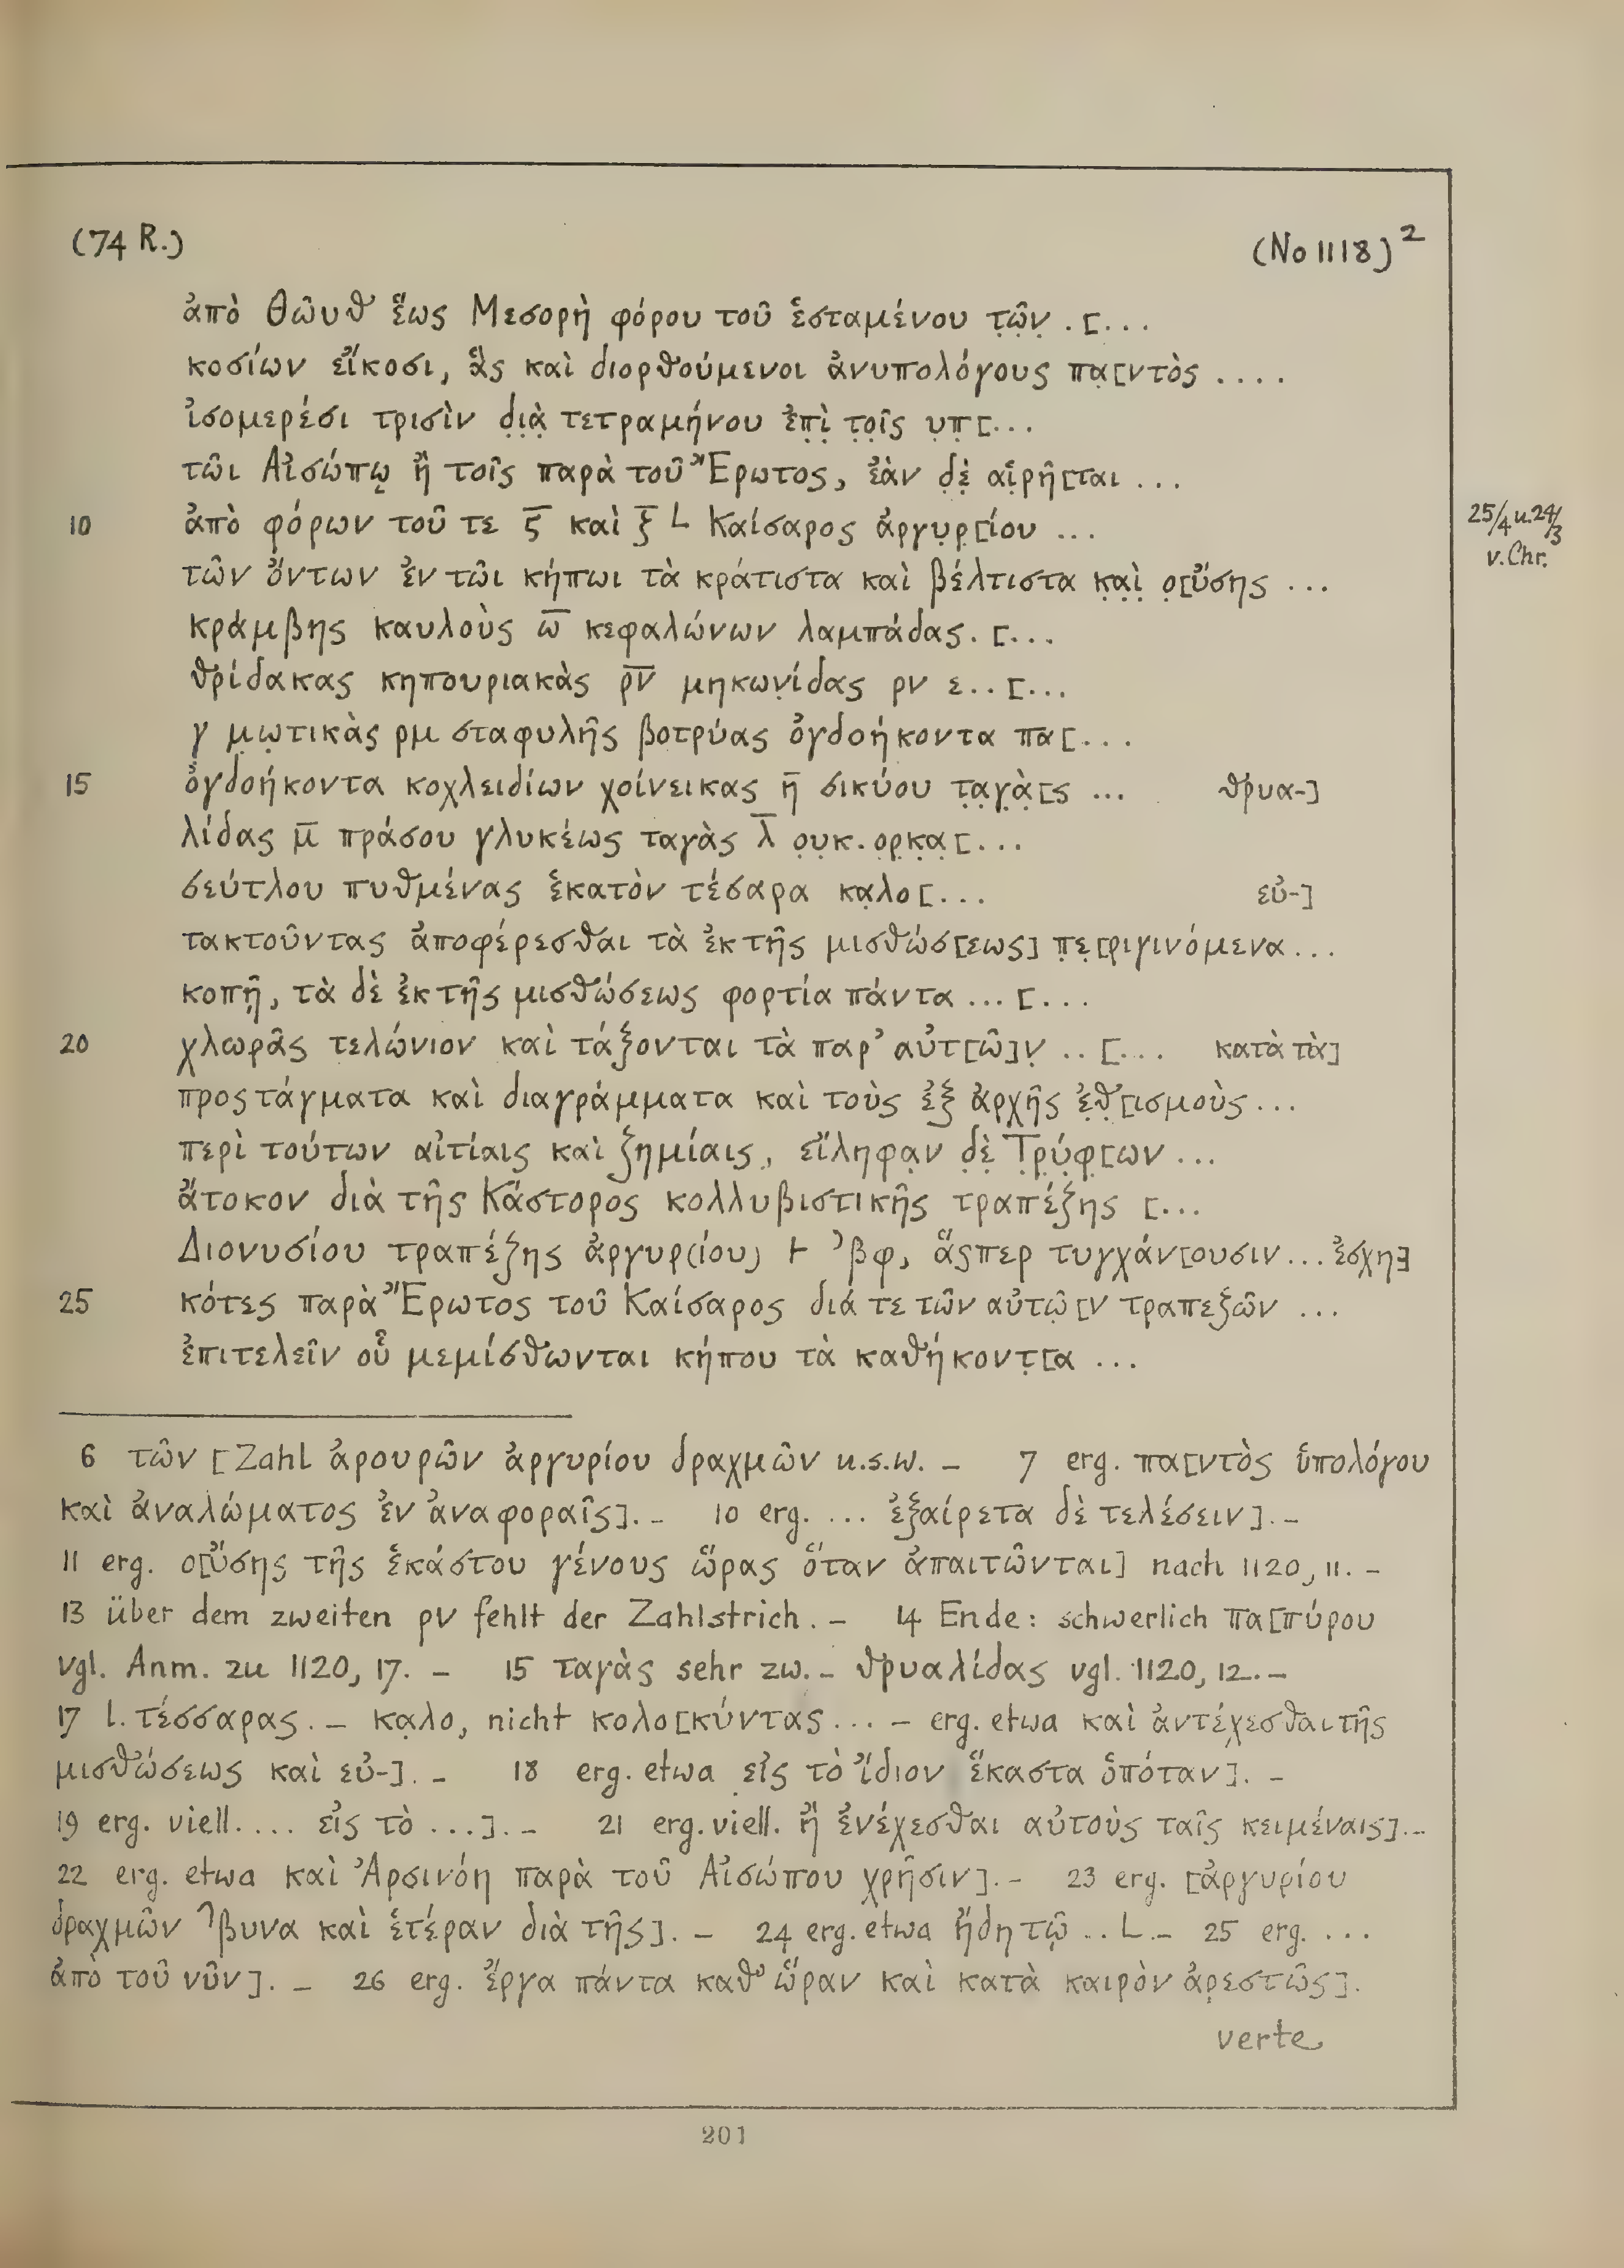 (74 R.) (No 1118)²
ἀπὸ Θωυθ ἕως Μεσορὴ φόρου τοῦ ἑσταμένου τ̣ῶ̣ν̣ . [...
κοσίων εἴκοσι, ἃς καὶ διορθούμενοι ἀνυπολόγους πα̣[ντὸς ....
ἰσομερέσι τρισὶν δ̣ι̣ὰ̣ τετραμήνου ἐπ̣ὶ̣ τ̣ο̣ῖς υ̣π̣[...
τῶι Αἰσώπῳ ἢ τοῖς παρὰ τοῦ Ἔρωτος, ἐὰν δ̣ὲ̣ αἱ̣ρῆ[ται ...
10 ἀπὸ φόρων τοῦ τε ς̅ καὶ ξ̅ L Καίσαρος ἀργυ̣ρ̣[ίου ...
25/4 u. 24/3
v. Chr.
τῶν ὄντων ἐν τῶι κήπωι τὰ κράτιστα καὶ βέλτιστα κ̣α̣ὶ̣ ο̣[ὔσης ...
κράμβης καυλοὺς ω̅ κεφαλώνων λαμπάδας. [...
θρίδακας κηπουριακὰς ρ̅ν̅ μηκων̣ίδας ρν ε..[...
γ μ̣ω̣τικὰς ρμ σταφυλῆς βοτρύας ὀγδοήκοντα πα[...
15 ὀγδοήκοντα κοχλειδίων χοίνεικας η̅ σικύου τ̣α̣γ̣ὰ̣[ς ... θρυα-]
λίδας μ̅ πράσου γλυκέως ταγὰς λ̅ ο̣υ̣κ.ο̣ρ̣κ̣α̣[...
σεύτλου πυθμένας ἑκατὸν τέσαρα κα̣λο[... εὐ-]
τακτοῦντας ἀποφέρεσθαι τὰ ἐκ τῆς μισθώσ[εως] π̣ε̣[ριγινόμενα...
κοπῇ, τὰ δὲ ἐκ τῆς μισθώσεως φορτία πάντα ...[...
20 χλωρᾶς τελώνιον καὶ τάξονται τὰ παρ' αὐτ[ῶ]ν̣ ..[... κατὰ τὰ]
προςτάγματα καὶ διαγράμματα καὶ τοὺς ἐξ ἀρχῆς ἐ̣θ̣[ισμοὺς...
περὶ τούτων αἰτίαις καὶ ζημίαις, εἴληφα̣ν δ̣ὲ̣ Τ̣ρ̣ύ̣φ̣[ων ...
ἄτοκον διὰ τῆς Κάστορος κολλυβιστικῆς τραπέζης [...
Διονυσίου τραπέζης ἀργυρ(ίου) ⊢ ʾβφ, ἅςπερ τυγχάν[ουσιν...ἐσχη]
25 κότες παρὰ Ἔρωτος τοῦ Καίσαρος διά τε τῶν αὐτῶ̣[ν τραπεζῶν ...
ἐπιτελεῖν οὗ μεμίσθωνται κήπου τὰ καθήκοντ̣[α ...
6 τῶν [Zahl ἀρουρῶν ἀργυρίου δραχμῶν u.s.w. – 7 erg. πα[ντὸς ὑπολόγου
καὶ ἀναλώματος ἐν ἀναφοραῖς]. – 10 erg. ... ἐξαίρετα δὲ τελέσειν]. –
11 erg. ο[ὔσης τῆς ἑκάστου γένους ὥρας ὅταν ἀπαιτῶνται] nach 1120, 11. –
13 über dem zweiten ρν fehlt der Zahlstrich. – 14 Ende: schwerlich πα[πύρου
vgl. Anm. zu 1120, 17. – 15 ταγὰς sehr zw. – θρυαλίδας vgl. 1120, 12. –
17 l. τέσσαρας. – κα̣λο, nicht κολο[κύντας ... – erg. etwa καὶ ἀντέχεσθαι τῆς
μισθώσεως καὶ εὐ-]. – 18 erg. etwa εἰς τὸ ἴδιον ἕκαστα ὁπόταν]. –
19 erg. viell. ... εἰς τὸ ...]. – 21 erg. viell. ἢ ἐνέχεσθαι αὐτοὺς ταῖς κειμέναις]. –
22 erg. etwa καὶ Ἀρσινόη παρὰ τοῦ Αἰσώπου χρῆσιν]. – 23 erg. [ἀργυρίου
δραχμῶν ʾβυνα καὶ ἑτέραν διὰ τῆς]. – 24 erg. etwa ἤδη τῷ .. L. – 25 erg. ...
ἀπὸ τοῦ νῦν]. – 26 erg. ἔργα πάντα καθ' ὥραν καὶ κατὰ καιρὸν ἀρεστῶς].
verte
201